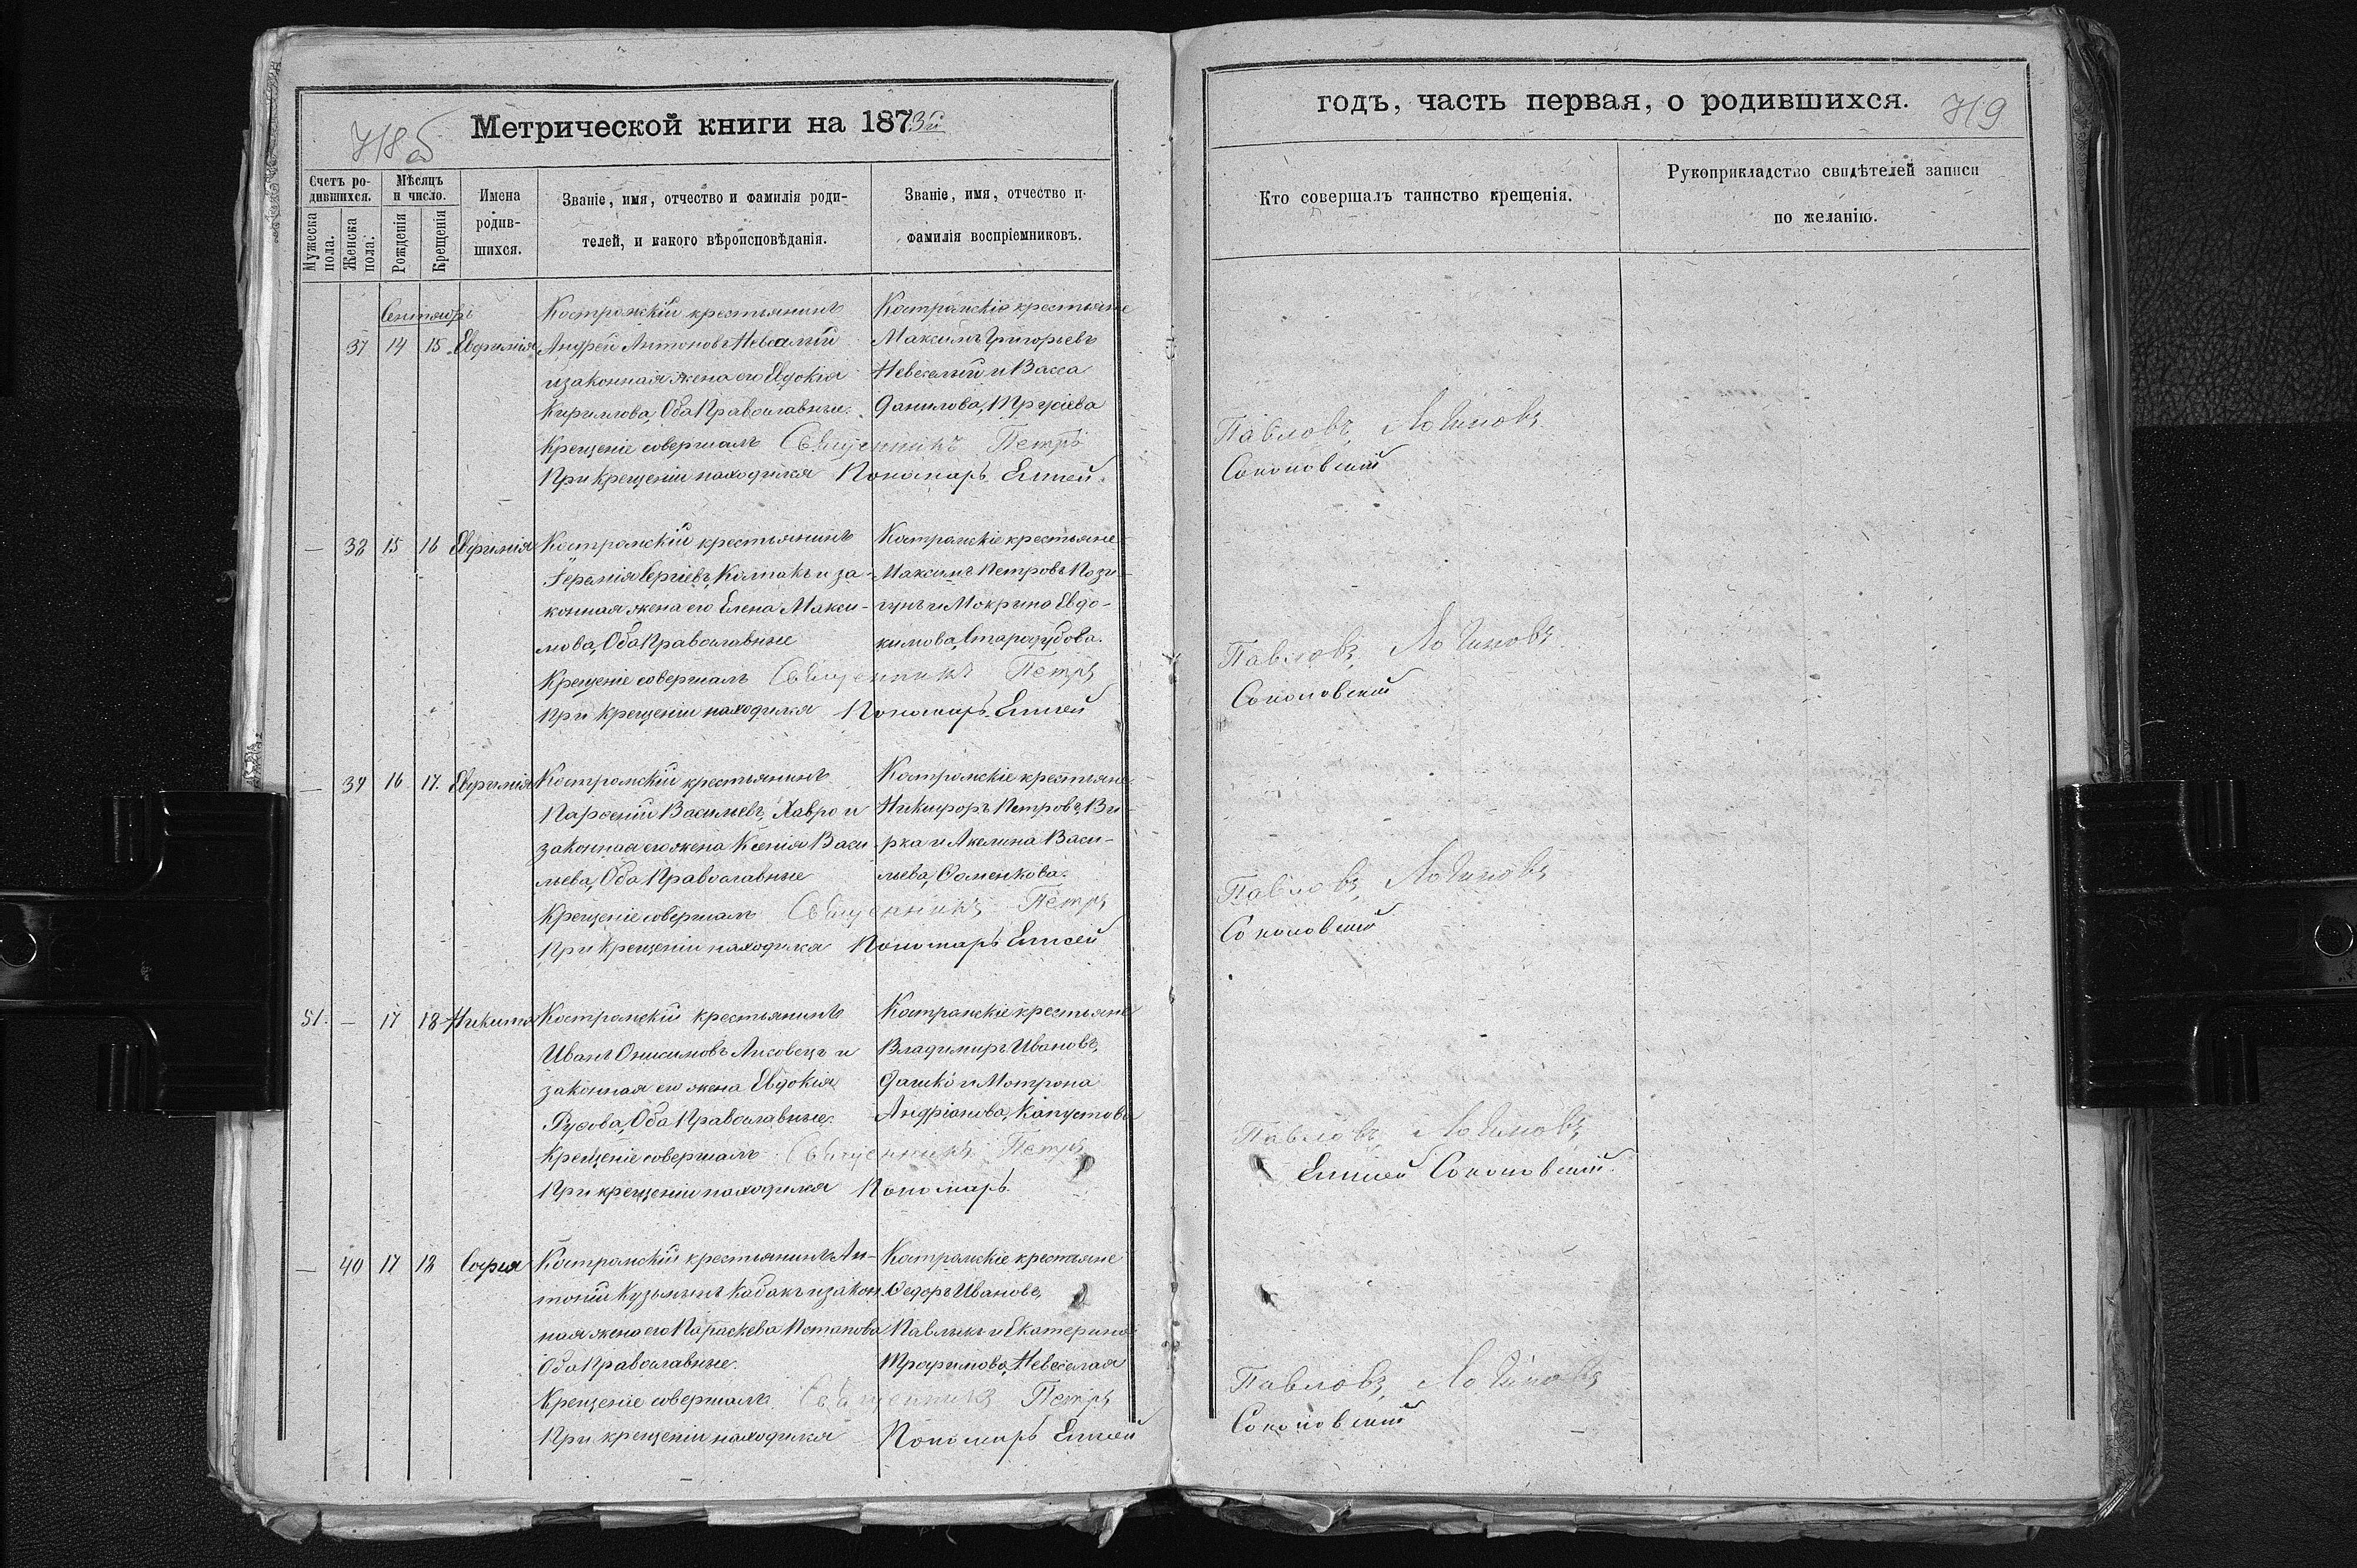 718об
Метрической книги на 1873й
Счетъ ро-
дившихся.
Мѣсяцъ
и число.
Мужеска
пола.
Женска
пола.
Рожденія
Крещенія
Имена
родив-
шихся.
Званіе, имя, отчество и фамилія роди-
телей, и какого вѣроисповѣданія.
Званіе, имя, отчество и
фамилія воспріемниковъ.
Сентябрь
37 14 15 Евфимія
Костромскій крестьянинъ
Андрей Антоновъ Невеселый
и законная жена его Евдокія
Кириллова, Оба Православные.
Костромскіе крестьяне
Максимъ Григорьевъ
Невеселый и Васса
Данилова,
Крещеніе совершалъ Священникъ Петръ
При крещеніи находился Пономарь Елисей
— 38 15 16 Евфимія
Костромскій крестьянинъ
Іеремія Сергіевъ, Колпакъ и за-
конная жена его Елена Макси-
мова, Оба Православные
Костромскіе крестьяне
Максимъ Петровъ Пози-
гунъ и Мокрина Евдо-
кимова, Стародубова.
Крещеніе совершалъ Священникъ Петръ
При крещеніи находился Пономарь Елисей
— 39 16 17. Евфимія
Костромскій крестьянинъ
Парфеній Васильевъ, Хавро и
законная его жена Ксенія Васи-
льева, Оба Православные
Костромскіе крестьяне
Никифоръ Петровъ, Ви-
рка и Акилина Васи-
льева, Фоменкова.
Крещеніе совершалъ Священникъ Петръ
При крещеніи находился Пономарь Елисей
51. — 17 18 Никита
Костромскій крестьянинъ
Иванъ Онисимовъ Лисовецъ и
законная его жена Евдокія
Оба Православные.
Костромскіе крестьяне
Владимиръ Ивановъ,
Дашко и Мотрона
Андріанова, Капустова
Крещеніе совершалъ Священникъ Петръ
При крещеніи находился Пономарь
— 40 17 18 Софія
Костромскій крестьянинъ Ан-
тоній Кузьминъ Кабакъ и закон-
ная жена его Параскева Потапова
Оба Православные.
Костромскіе крестьяне
Ѳедоръ Ивановъ,
Павлыкъ и Екатерина
Трофимова, Невеселая
Крещеніе совершалъ Священникъ Петръ
При крещеніи находился Пономарь Елисей
годъ, часть первая, о родившихся. 719
Кто совершалъ таинство крещенія.
Рукоприкладство свидѣтелей записи
по желанію.
Павловъ Логиновъ
Соколовскій
Павловъ Логиновъ
Соколовскій
Павловъ Логиновъ
Соколовскій
Павловъ Логиновъ
Елисей Соколовскій.
Павловъ Логиновъ
Соколовскій